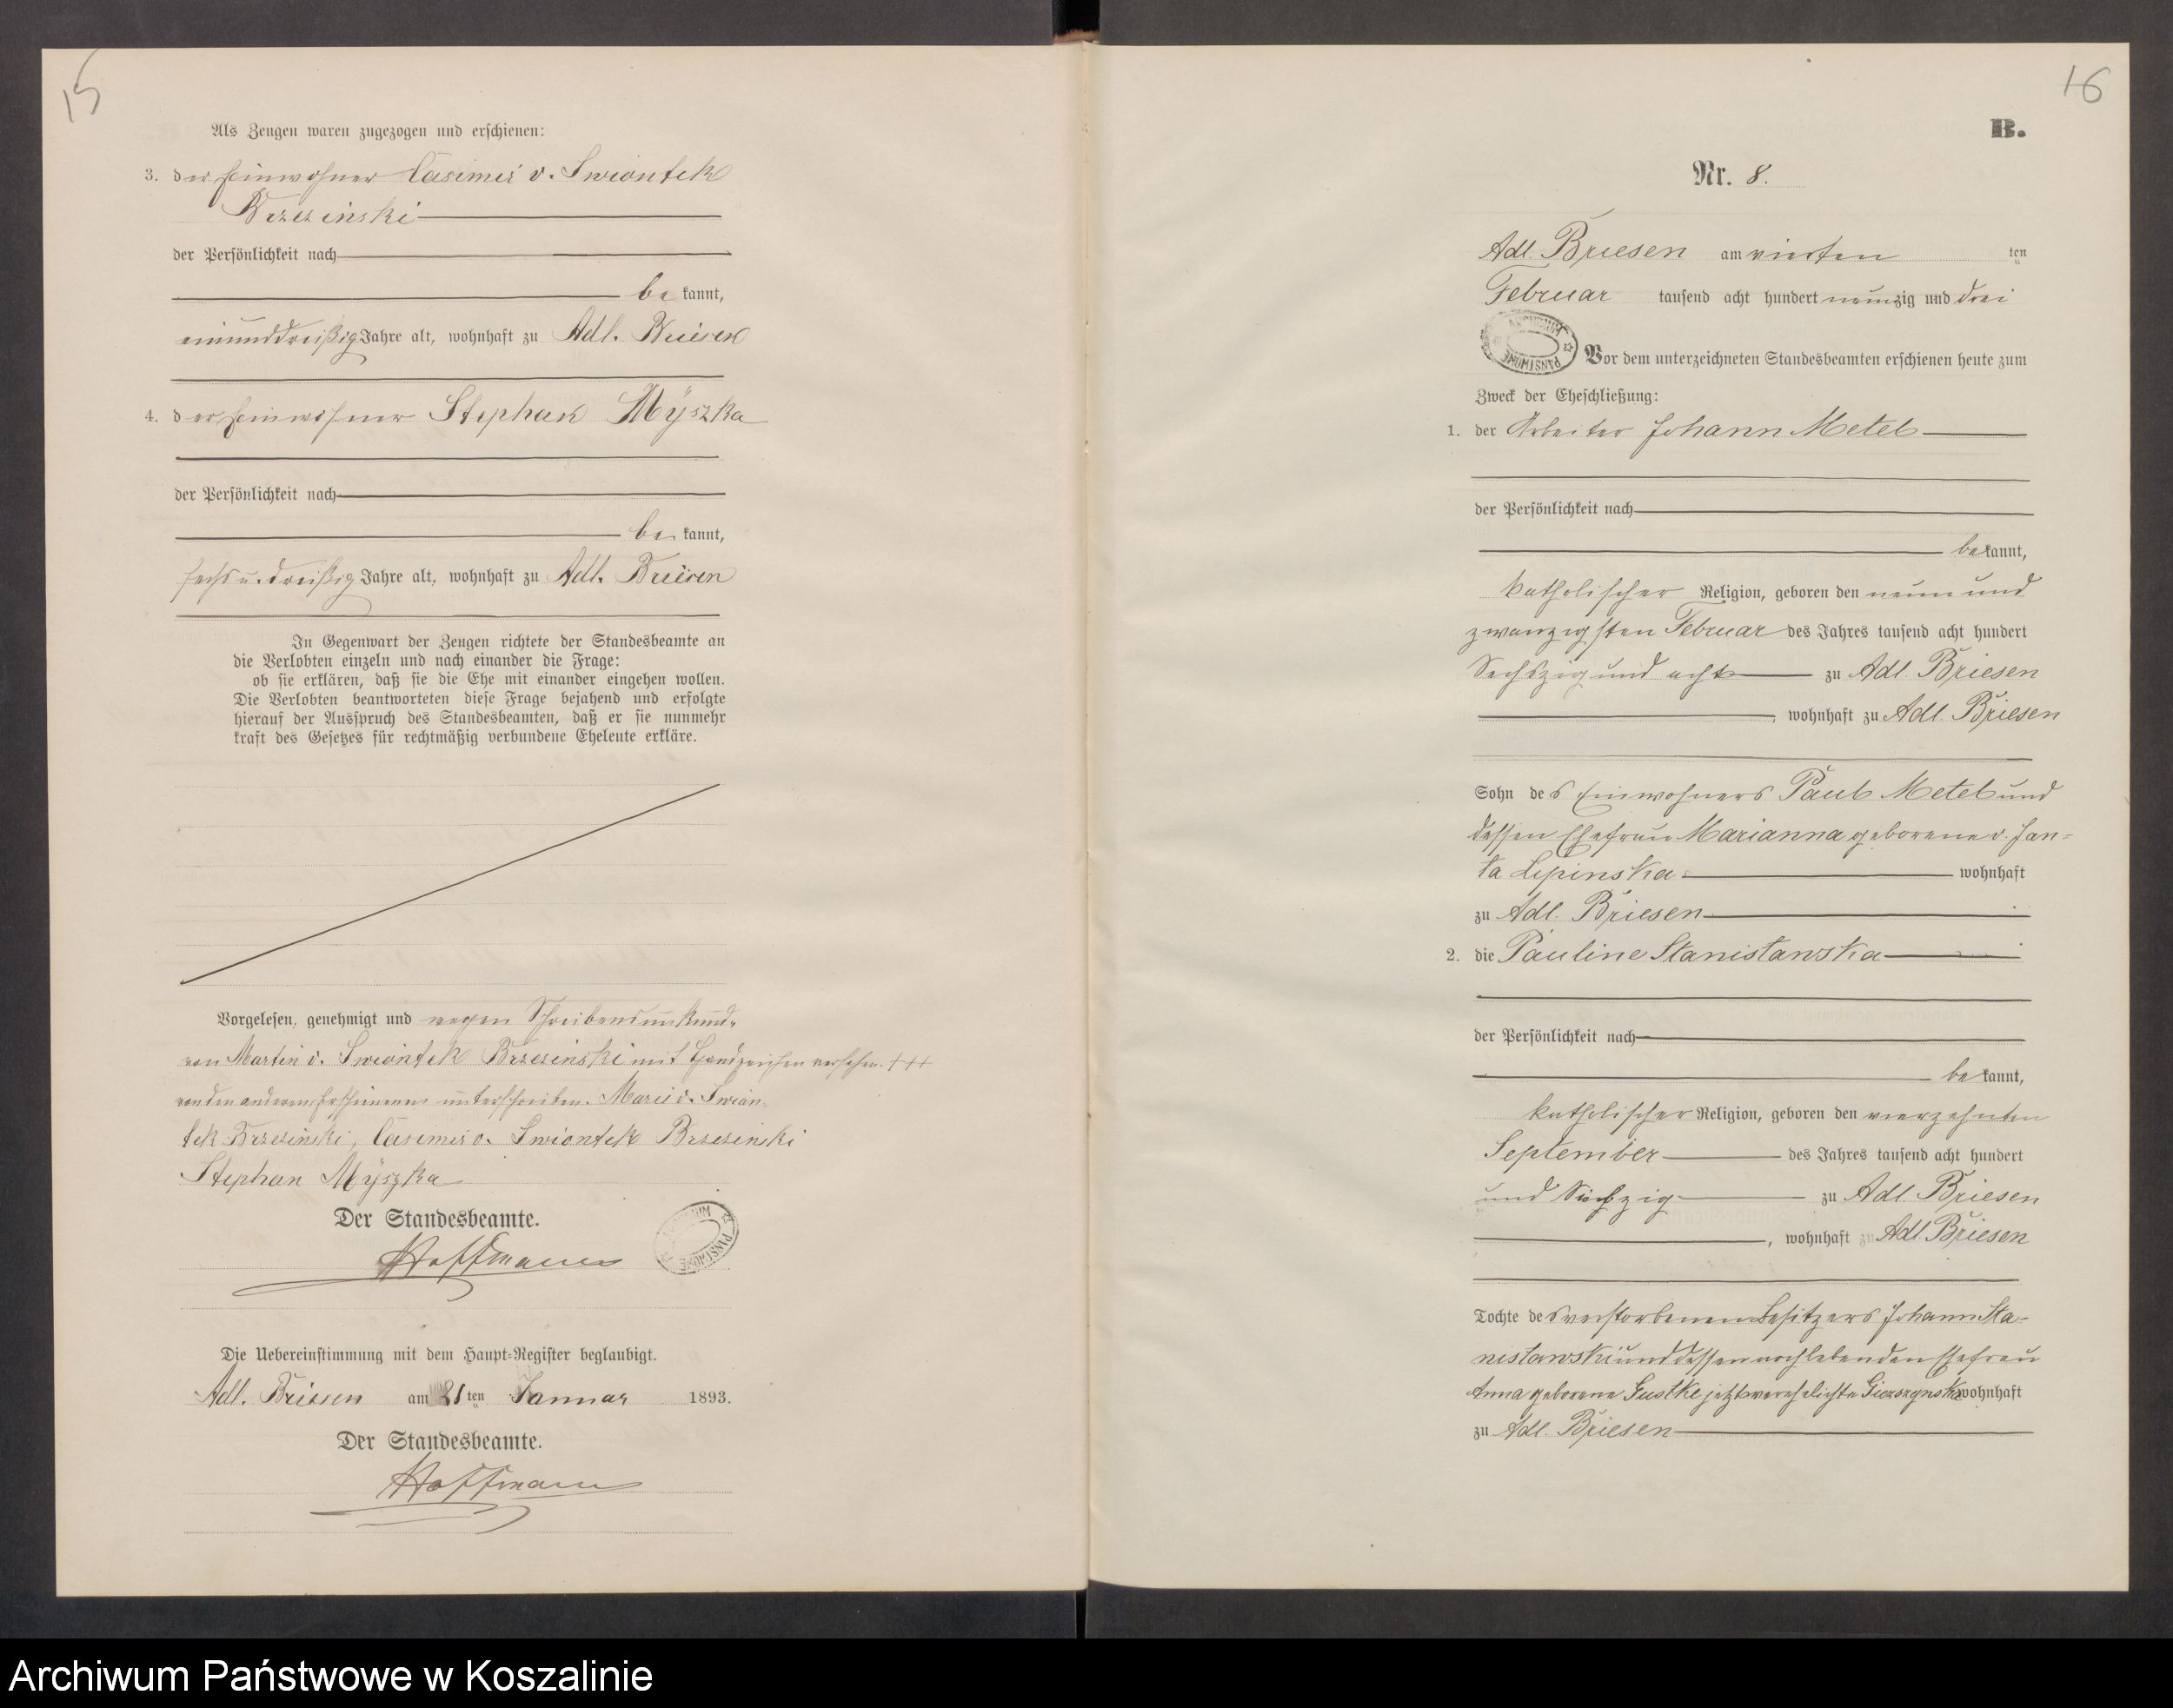 15
Als Zeugen waren zugezogen und erschienen:
3. der Einwohner Casimir v. Swiontek
Brzezinski
der Persönlichkeit nach
be kannt,
einunddreißig Jahre alt, wohnhaft zu Adl. Briesen
4. der Einwohner Stephan Myszka
der Persönlichkeit nach
be kannt,
sechs u. dreißig Jahre alt, wohnhaft zu Adl. Briesen
In Gegenwart der Zeugen richtete der Standesbeamte an
die Verlobten einzeln und nach einander die Frage:
ob sie erklären, daß sie die Ehe mit einander eingehen wollen.
Die Verlobten beantworteten diese Frage bejahend und erfolgte
hierauf der Ausspruch des Standesbeamten, daß er sie nunmehr
kraft des Gesetzes für rechtmäßig verbundene Eheleute erkläre.
Vorgelesen, genehmigt und wegen Schreibensunkund.
von Martin v. Swiontek Brzezinski mit Handzeichen versehen. +++
von den anderen Erschienenen unterschrieben. Marie v. Swion-
tek Brzezinski, Casimir v. Swiontek Brzezinski
Stephan Myszka
Der Standesbeamte.
Hoffmann
ARCHIWUM PAŃSTWOWE
Die Uebereinstimmung mit dem Haupt-Register beglaubigt.
Adl. Briesen am 21 ten Januar 1893.
Der Standesbeamte.
Hoffmann
16
B.
Nr. 8.
Adl. Briesen am vierten ten
Februar tausend acht hundert neunzig und drei
ARCHIWUM PAŃSTWOWE
Vor dem unterzeichneten Standesbeamten erschienen heute zum
Zweck der Eheschließung:
1. der Arbeiter Johann Metel
der Persönlichkeit nach
be kannt,
katholischer Religion, geboren den neun und
zwanzigsten Februar des Jahres tausend acht hundert
Sechszig und acht zu Adl. Briesen
, wohnhaft zu Adl. Briesen
Sohn des Einwohners Paul Metel und
dessen Ehefrau Marianna geborene v. Jan-
ta Lipinska wohnhaft
zu Adl. Briesen
2. die Pauline Stanislawska
der Persönlichkeit nach
be kannt,
katholischer Religion, geboren den vierzehnten
September des Jahres tausend acht hundert
und Siebzig zu Adl. Briesen
, wohnhaft zu Adl. Briesen
Tochte des verstorbenen Besitzers Johann Sta-
nislawski und dessen noch lebenden Ehefrau
Anna geborene Gustke jetzt verehelichte wohnhaft
zu Adl. Briesen
Archiwum Państwowe w Koszalinie